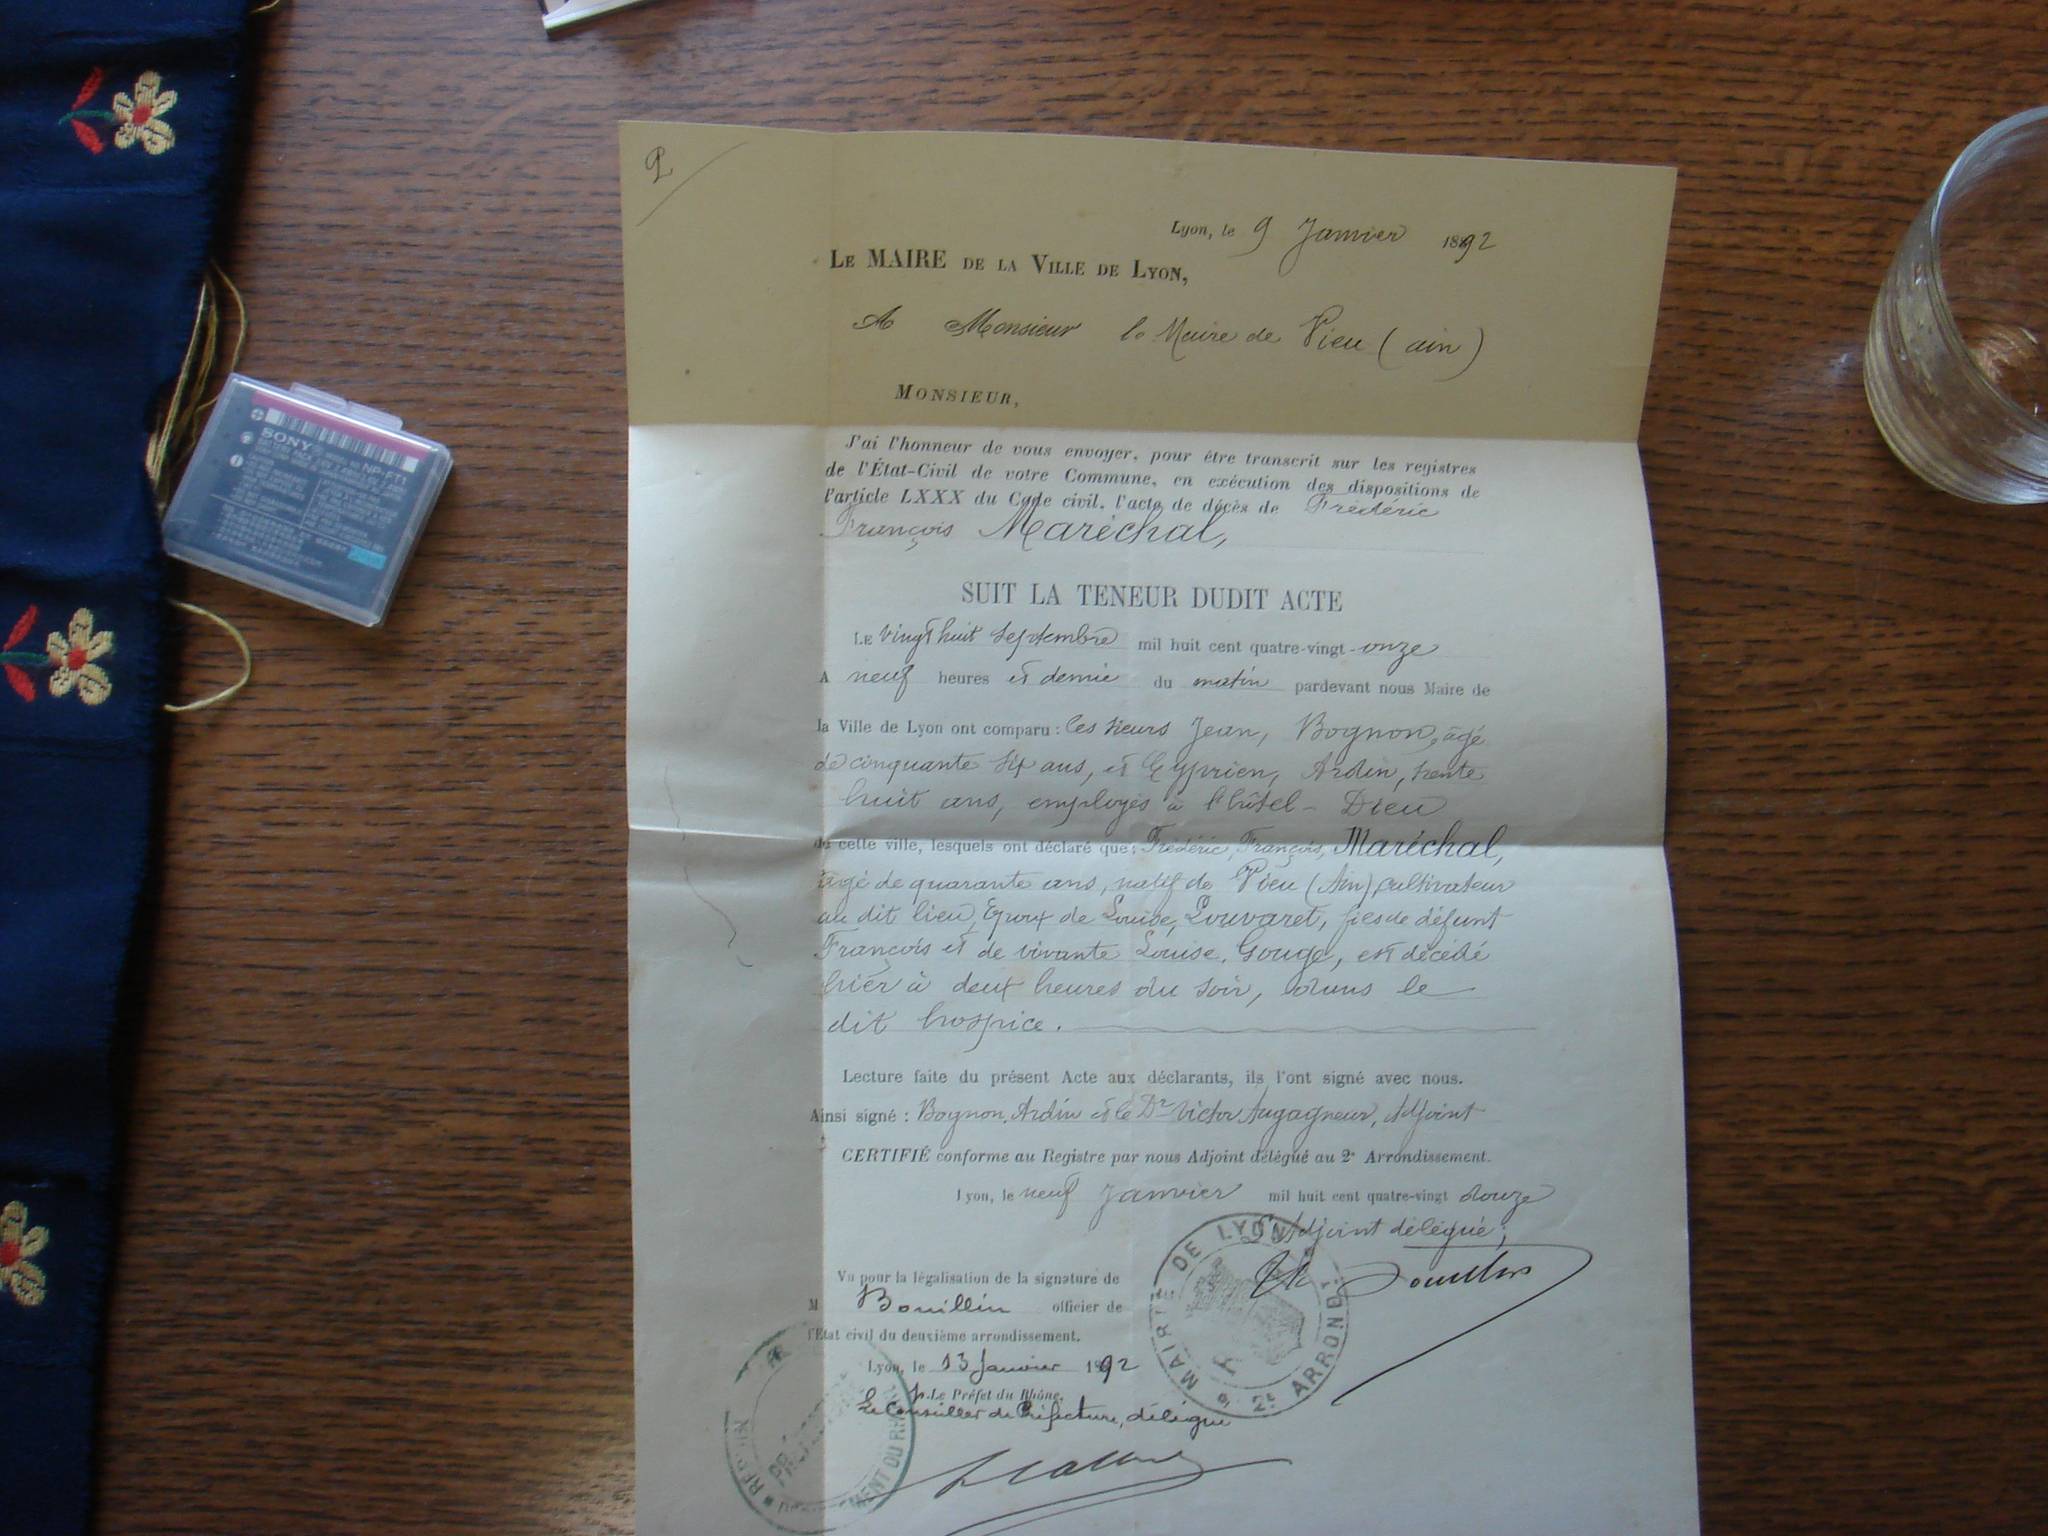 Lyon, le 9 Janvier 1892
LE MAIRE DE LA VILLE DE LYON,
A Monsieur le Maire de Vieu (ain)
MONSIEUR,
J'ai l'honneur de vous envoyer, pour être transcrit sur les registres
de l'État-Civil de votre Commune, en exécution des dispositions de
l'article LXXX du Code civil, l'acte de décès de Frédéric
François Maréchal,
SUIT LA TENEUR DUDIT ACTE
LE vingt huit septembre mil huit cent quatre-vingt-onze
A neuf heures et demie du matin pardevant nous Maire de
la Ville de Lyon ont comparu : les sieurs Jean, Bognon, âgé
de cinquante six ans, et Cyprien, Ardin, trente
huit ans, employés à l'hôtel-Dieu
de cette ville, lesquels ont déclaré que : Frédéric, François, Maréchal,
âgé de quarante ans, natif de Vieu (Ain), cultivateur
au dit lieu, Epoux de Louise, Louvaret, fils de défunt
François et de vivante Louise, Gouge, est décédé
hier à deux heures du soir, dans le
dit hospice.
Lecture faite du présent Acte aux déclarants, ils l'ont signé avec nous.
Ainsi signé : Bognon, Ardin et le Dr Victor Augagneur, Adjoint
CERTIFIÉ conforme au Registre par nous Adjoint délégué au 2e Arrondissement.
Lyon, le neuf Janvier mil huit cent quatre-vingt douze
L'Adjoint délégué;
MAIRIE DE LYON
2e ARRONDT
Vu pour la légalisation de la signature de
M Bouillin officier de
l'État civil du deuxième arrondissement.
Lyon, le 13 Janvier 1892
Le Préfet du Rhône,
Le Conseiller de Préfecture, délégué
SONY
NP-FT1